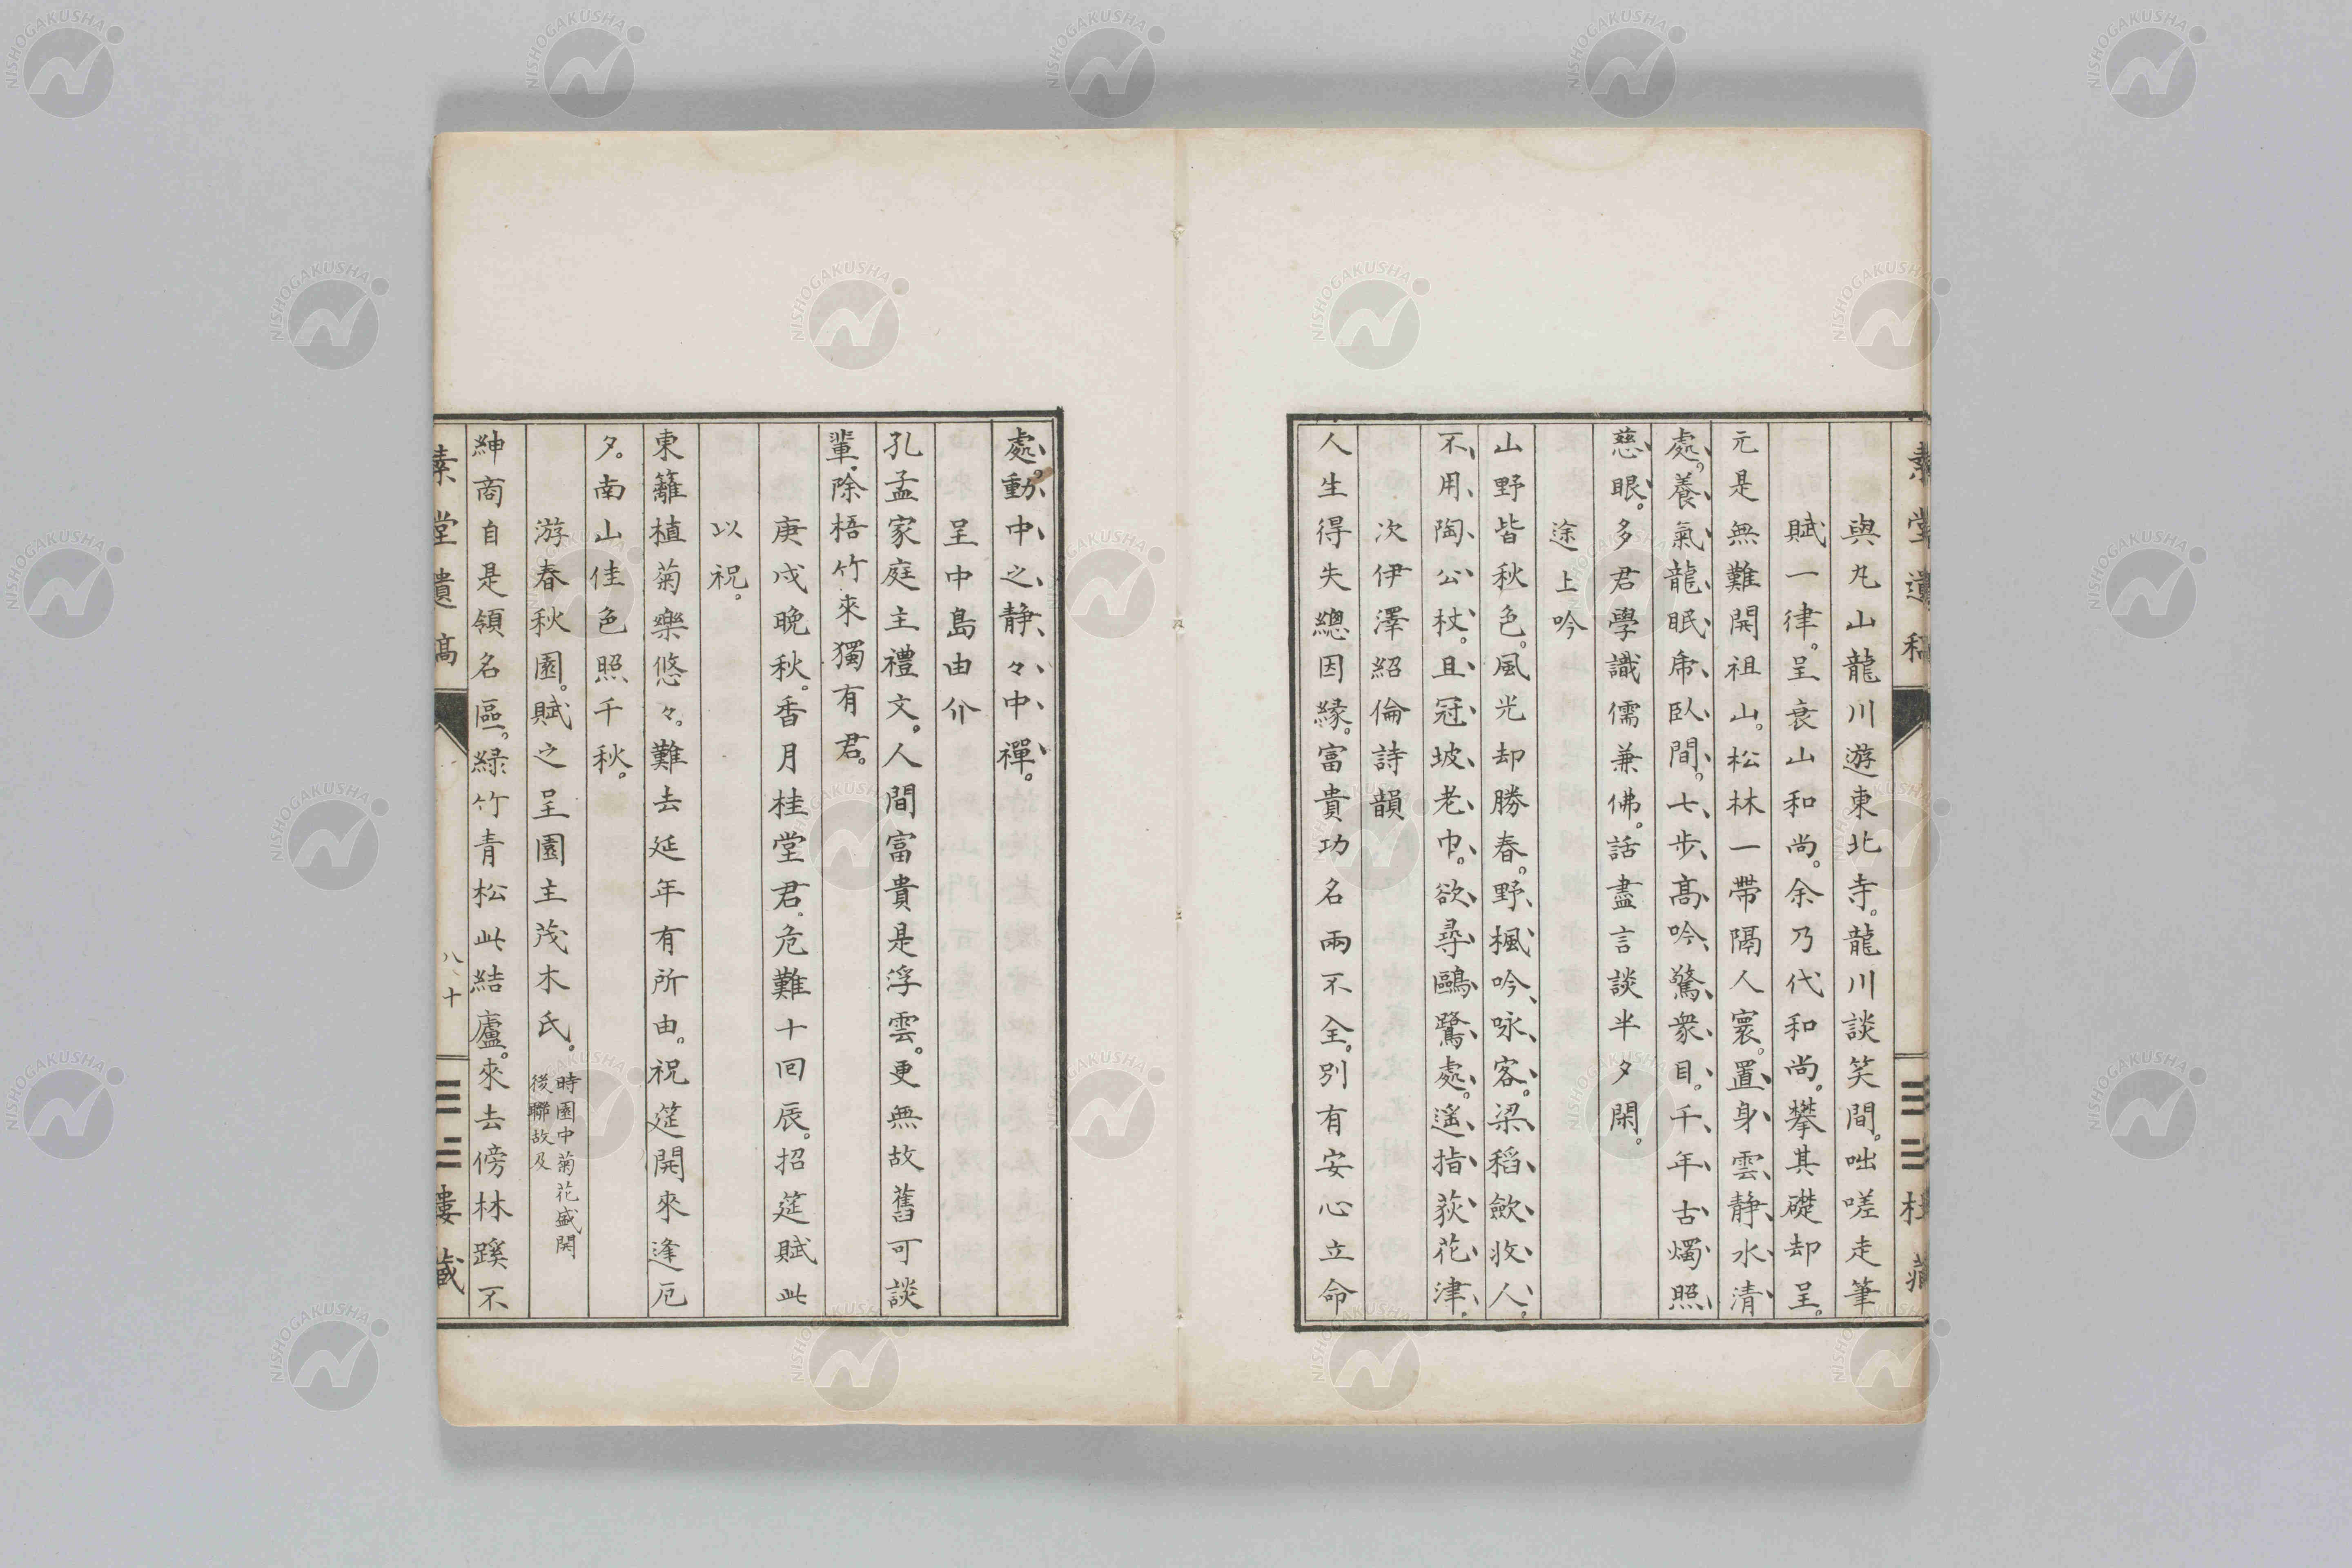 與丸山龍川游東北寺。龍川談笑間。咄嗟走筆
賦一律。呈衰山和尚。余乃代和尚。攀其礎却呈。
元是無難開祖山。松林一帶隔人寰。置身雲静水清
處。養氣龍眠乕臥間。七步高吟驚衆目。千年古燭照
慈眼。多君學識儒兼佛。話盡言談半夕閑。
途上吟
山野皆秋色。風光却勝春。野楓吟咏客。梁稻歛收人。
不用陶公杖。且冠坡老巾。欲尋鷗鷺處。遥指荻花津。
次伊澤紹倫詩韻
人生得失總因緣。富貴功名兩不全。別有安心立命
處。動中之静々中禪。
呈中島由介
孔孟家庭主禮文。人間富貴是浮雲。更無故舊可談
輩。除梧竹來獨有君。
庚戌晚秋。香月桂堂君。危難十回辰。招筵賦此
以祝。
東籬植菊樂悠々。難去延年有所由。祝筵開來逢厄
夕。南山佳色照千秋。
游春秋園。賦之呈園主茂木氏。時園中菊花盛開
後聯故及
紳商自是領名區。緑竹青松此結廬。來去傍林蹊不
素堂遺稿
八十
三三樓藏
NISHOGAKUSHA